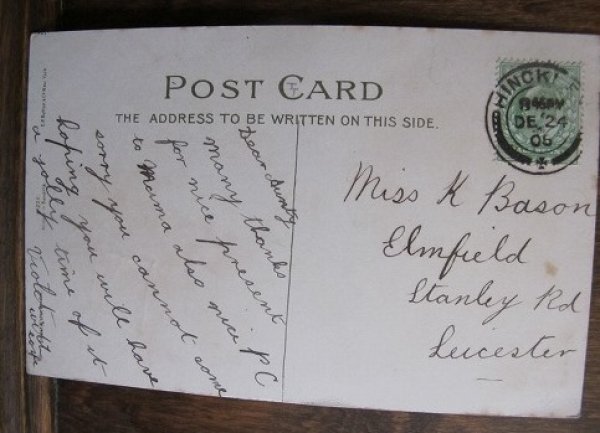 POST CARD
THE ADDRESS TO BE WRITTEN ON THIS SIDE.
HINCKLEY
DE 24
06
Dear Aunty
many thanks
for nice present
to Mama also nice PC
sorry you cannot come
hoping you will have
a jolly time of it
Miss K Bason
Elmfield
Stanley Rd
Leicester